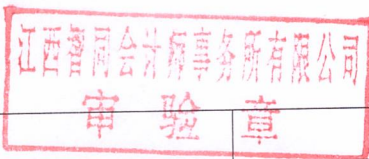 江西普同会计师事务所有限公司
审验章